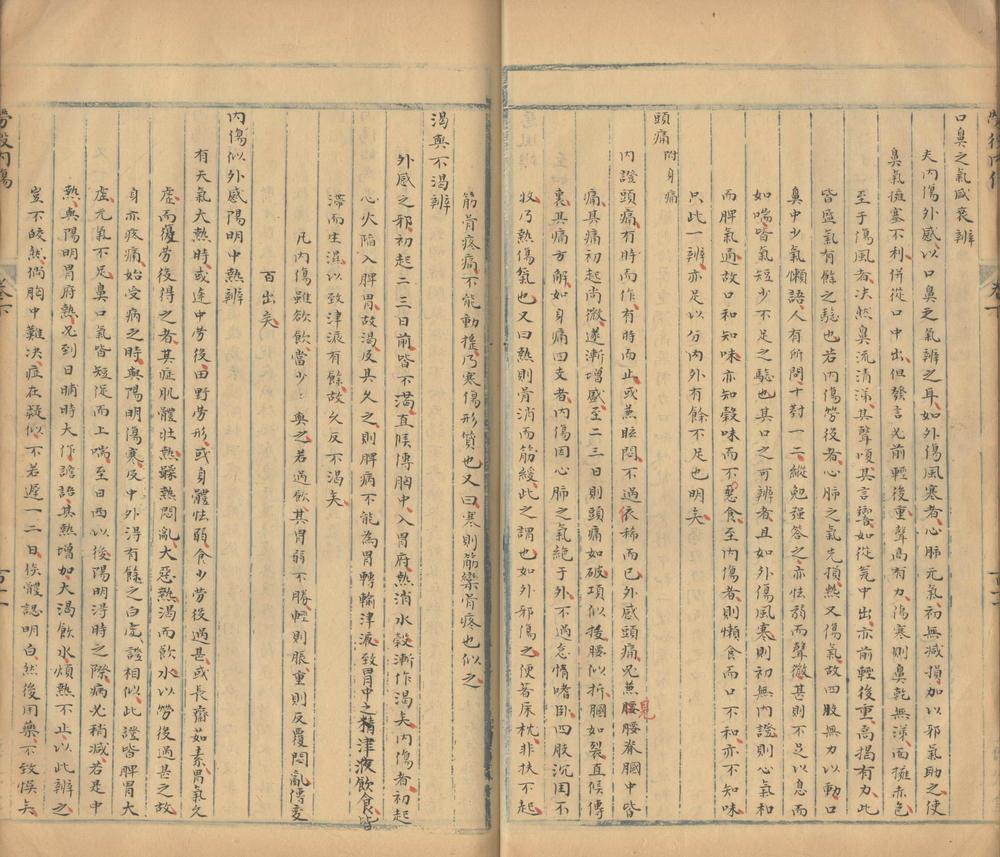 口鼻之氣盛衰辨
夫內傷外感以口鼻之氣辨之耳如外傷風寒者心肺元氣初無減損加以邪氣助之使
鼻氣擁塞不利併從口中出但發言必前輕後重聲高有力傷寒則鼻乾無涕面擁赤色
至于傷風者决然鼻流清涕其聲嗄其言響如從甕中出亦前輕後重高揭有力此
皆盛氣有餘之驗也若內傷勞後者心肺之氣先損熱又傷氣故四肢無力以動口
鼻中少氣懶語人有所問十對一二縱勉强答之亦怯弱而聲微甚則不足以息而
如喘皆氣短少不足之驗也其口之可辨者且如外傷風寒則初無內證則心氣和
而脾氣通故口和知味亦知穀味而不惡食至內傷者則懶食而口不和亦不知味
只此一辨亦足以分內外有餘不足也明矣
頭痛附身痛
內證頭痛有時而作有時而止或蕉眩悶不過依稀而已外感頭痛必蕉見腰脊胭中皆
痛其痛初起尚微遂漸增盛至二三日則頭痛如破項似拔腰似折胭如裂直候傳
裏其痛方解如身痛四支者內傷因心肺之氣絕于外不過怠惰嗜卧四肢沉困不
收乃熱傷氣也又曰熱則骨消而筋緩此之謂也如外邪傷之便著床枕非扶不起
筋骨疼痛不能動搖乃寒傷形質也又曰寒則筋欒骨疼也似之
渴與不渴辨
外感之邪初起二三日前皆不渴直候傳胸中入胃府熱消水穀漸作渴矣內傷者初起
心火陷入脾胃故渴及其久之則脾病不能為胃轉輸津液致胃中之精津液飲食皆
滯而生濕以致津液有餘故久反不渴矣
凡內傷雖欲飲當少：與之若過飲其胃弱不勝輕則脹重則反覆悶亂傳変
百出矣
內傷似外感陽明中熱辨
有天氣大熱時或途中勞役田野勞形或身體怯弱食少勞後過甚或長齋茹素胃氣久
虛而復勞後得之者其症肌體壯熱躁熱悶亂大惡熱渴而飲水以勞後過甚之故
身亦疼痛始受病之時與陽明傷寒及中外得有餘之白虎證相似此證皆脾胃大
虛元氣不足鼻口氣皆短促而上喘至日西以後陽明得時之際病必稍減若是中
熱與陽明胃府熱况到日晡時大作譫語其熱增加大渴飲水煩熱不止以此辨之
豈不皎然倘胸中難决症在疑似不若遲一二日俟體認明白然後用藥不致悞矣
勞役內傷
卷下